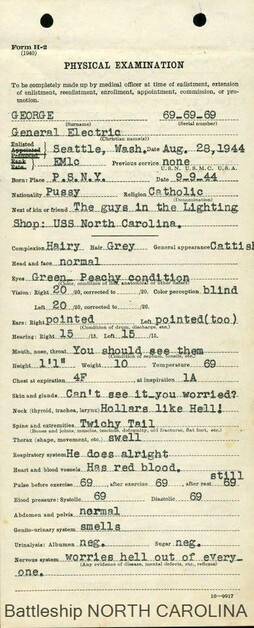 Form H-2
(1940)
PHYSICAL EXAMINATION
To be completely made up by medical officer at time of enlistment, extension
of enlistment, reenlistment, enrollment, appointment, commission, or pro-
motion.
GEORGE 69-69-69
(Surname) (Serial number)
General Electric
(Christian name(s))
Enlisted Seattle, Wash. Date Aug. 28, 1944
Rank
Rate EM1c Previous service none
U.S.N. U.S.M.C. U.S.A.
Born: Place P.S.N.Y. Date 5-9-44
Nationality Pussy Religion Catholic
(Denomination)
Next of kin or friend The guys in the Lighting
Shop: USS North Carolina.
Complexion Hairy Hair Grey General appearance Cattish
Head and face normal
Eyes Green. Peachy condition
Vision: Right 20/20, corrected to /20. Color perception blind
Left 20/20, corrected to /20.
Ears: Right pointed Left pointed(too)
(Condition of drum, discharge, etc.)
Hearing: Right 15/15. Left 15/15.
Mouth, nose, throat You should see them
Height 1'1" Weight 10 Temperature 69
Chest at expiration 4F at inspiration 1A
Skin and glands Can't see it-you worried?
Neck (thyroid, trachea, larynx) Hollars like Hell!
Spine and extremities Twichy Tail
Thorax (shape, movement, etc.) swell
Respiratory system He does alright
Heart and blood vessels Has red blood.
still
Pulse before exercise 69, after exercise 69, after rest 69
Blood pressure: Systolic 69 Diastolic 69
Abdomen and pelvis normal
Genito-urinary system smells
Urinalysis: Albumen neg. Sugar neg.
Nervous system worries hell out of every
(Any evidence of disease, mental defects, etc., reflexes)
one.
Battleship NORTH CAROLINA